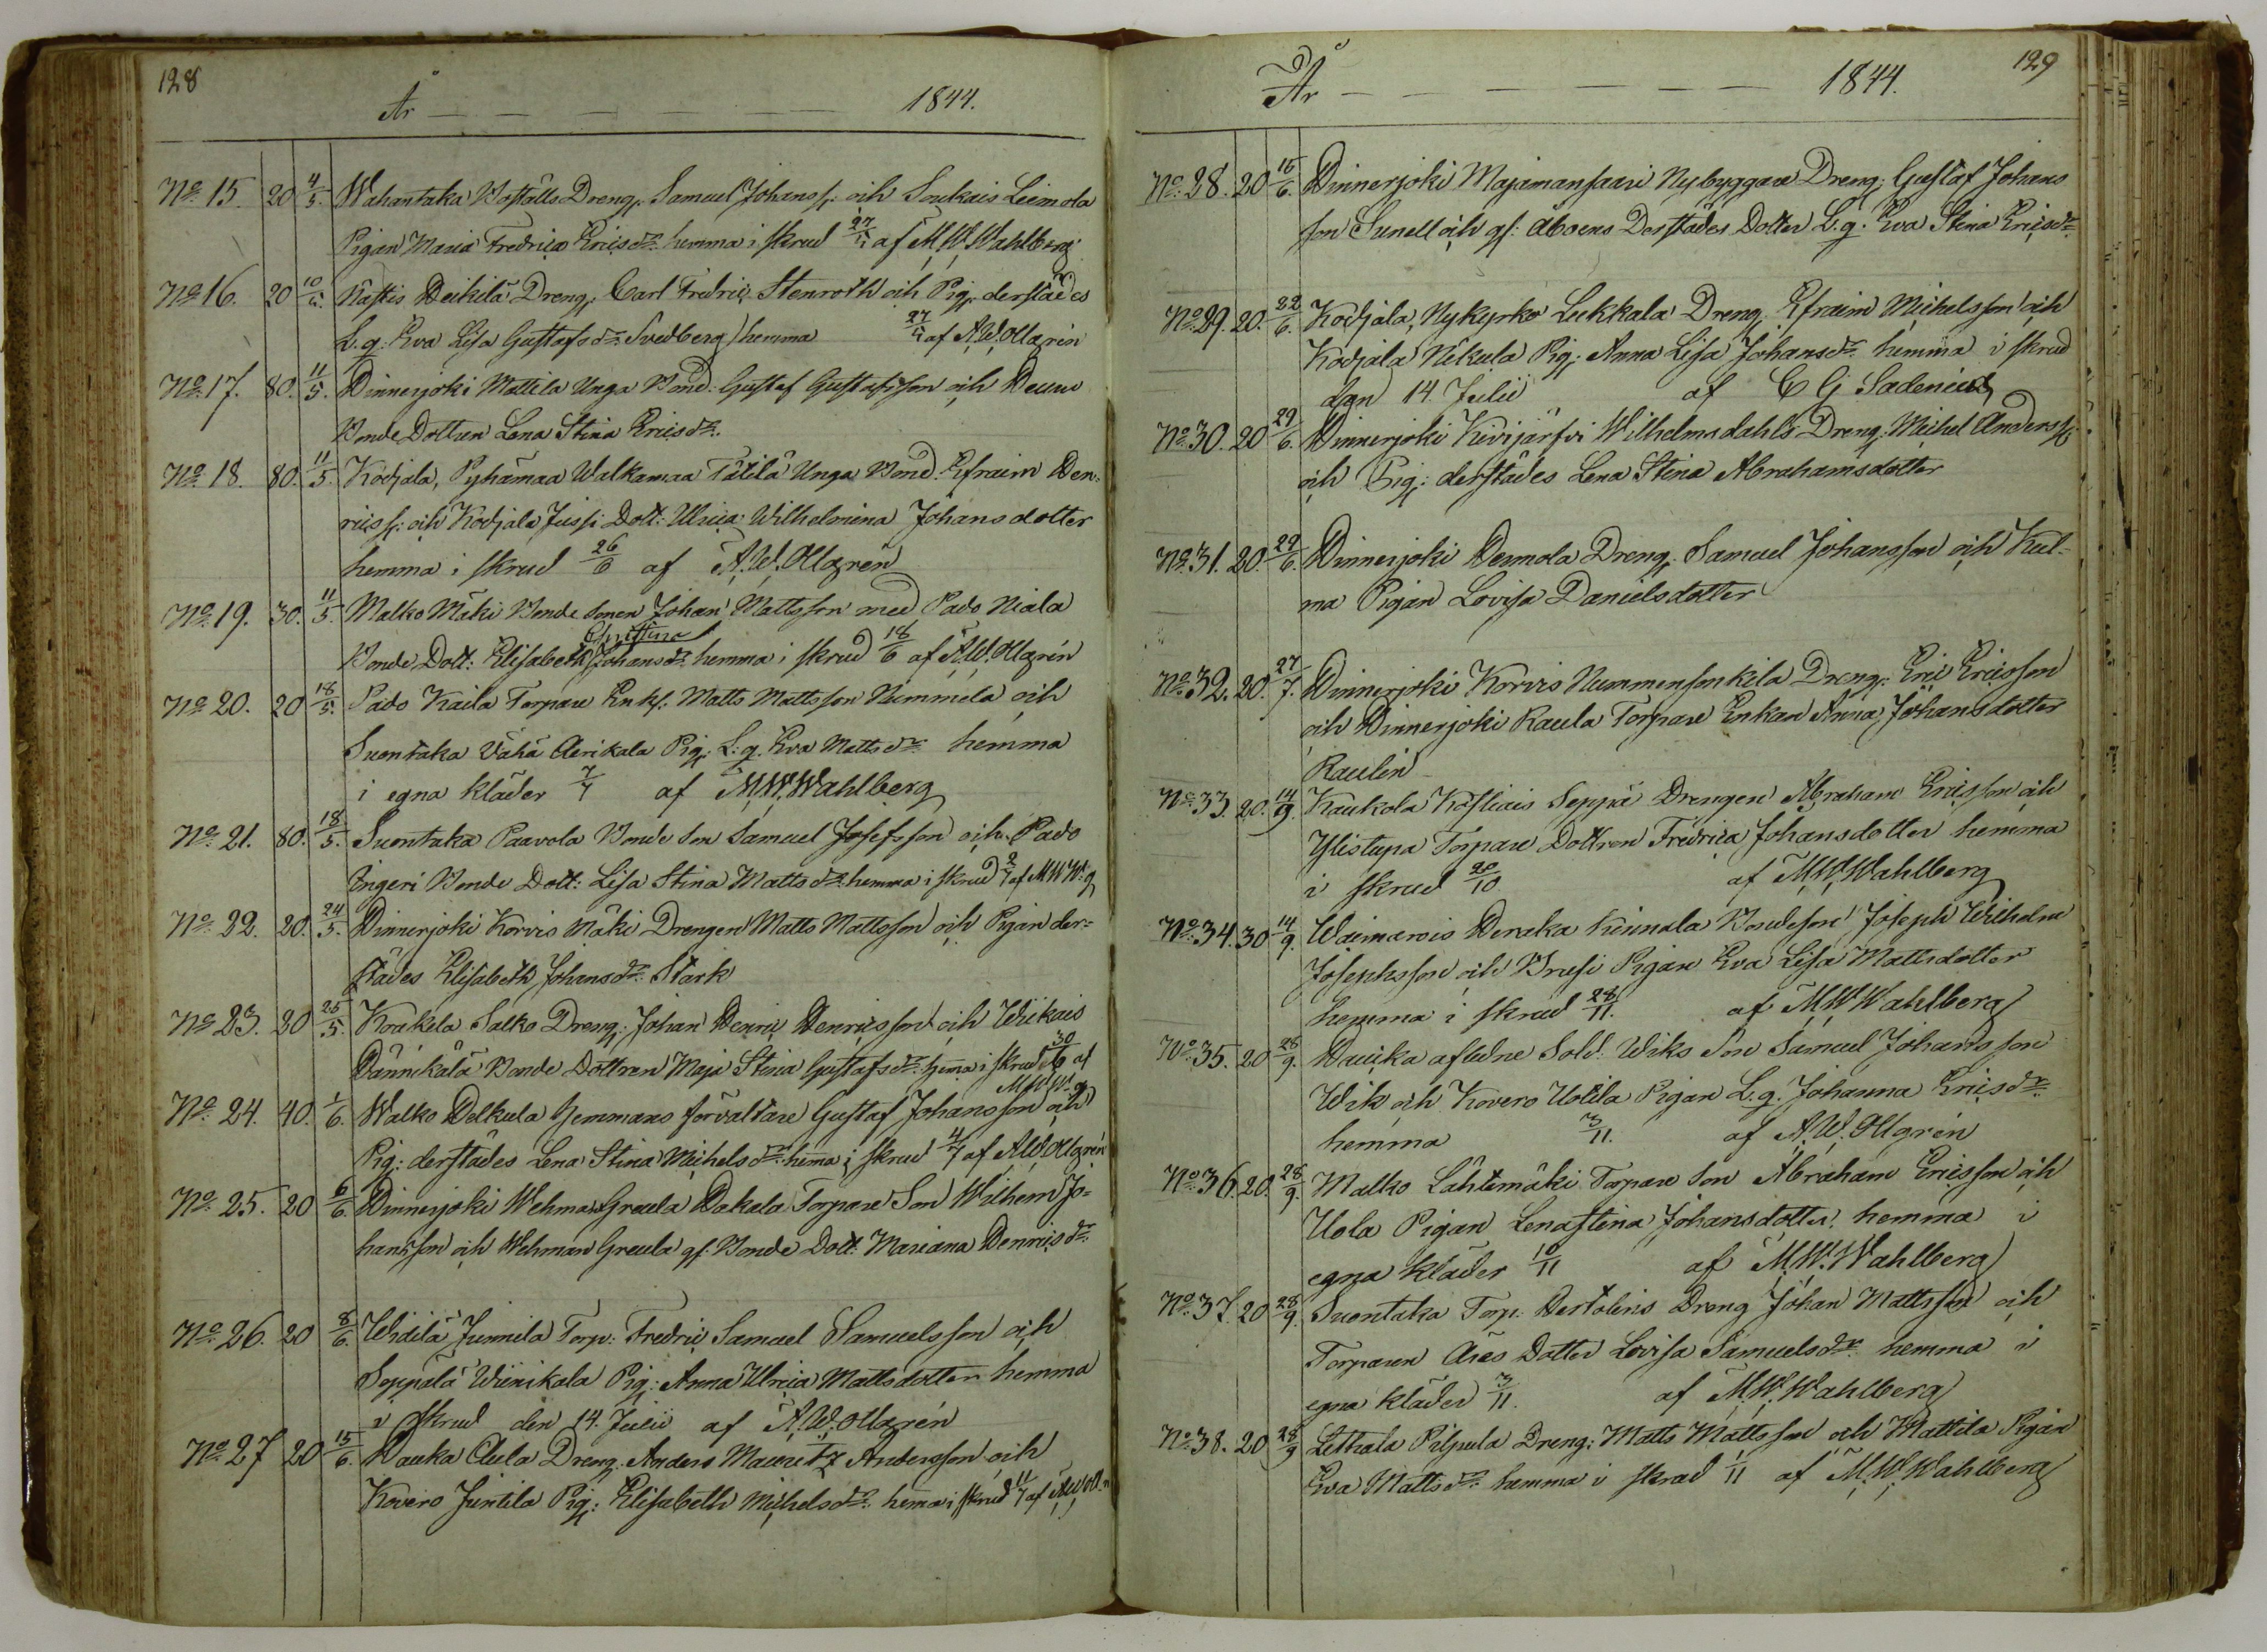 128
År 1844.
No 15. 20 4/5. Wahantaka Boställs Dreng. Samuel Johanss. och Soukais Leimola
Pigan Maria Fredrica Ericsdr. hemma i skrud af M.W.Wahlberg
No 16. 20 Dreng. Carl Fredric Stenroth och Pig. derstädes
L.g. Eva Lisa Gustafsdr. Svedberg hemma af A.W.Ollgrén
No 17. 80. 11/5. Hinnerjoki Mattila Unga Bond. Gustaf Gustafsson och
Bonde Dottren Lena Stina Ericsdr.
No 18. 80. 11/5. Kodjala, Pyhämaa Walkamaa Tätilä Unga Bond. Efraim Hen-
ricss. och Kodjala Jussi Dott: Ulrica Wilhelmina Johansdotter
hemma i skrud 26/6 af A.W.Ollgrén
No 19. 30. 11/5. Malko Mäki Bonde sonen Johan Mattsson med Pado Niala
Christina
Bonde Dott: Elisabeth Johansdr. hemma i skrud 18/6 af A.W.Ollgrén
No 20. 20 18/5. Pado Kaila Torpare Enkl. Matts Mattsson Nummela och
Suontaka Vähä Aerikala Pig: L:g. Eva Mattsdr. hemma
i egna kläder 7/7 af M.W.Wahlberg
No 21. 80. 18/5. Suontaka Paavola Bonde Son Samuel Josefsson och Pado
Ingeri Bonde Dott: Lisa Stina Mattsdr. hemma i skrud af MWW:g
No 22. 20. 24/5. Hinnerjoki Korvis Mäki Drengen Matts Mattsson och Pigan der-
städes Elisabeth Johansdr. Stark
No 23. 20 25/5. Koukela Salko Dreng: Johan Henric Henricsson och Wiikais
Hännikälä Bonde Dottren Maja Stina Gustafsdr. hema i skrud 30/6 af
MWW:g
No 24. 40. 1/6. Walko Helkula Hemmans förvaltare Gustaf Johansson och
Pig: derstädes Lena Stina Michelsdr. hema i skrud 4/7 af A.W.Ollgrén
No 25. 20 6/6. Hinnerjoki Wehmas Greula Hakala Torpare Son Wilhem Jo-
hansson och Wehman Greula gl. Bonde Dott: Mariana Henricsdr.
No 26. 20 8/6. Junnila Torp: Fredric Samuel Samuelsson och
Seppälä Wiinikala Pig: Anna Ulrica Mattsdotter hemma
i skrud den 14. Julii af A.W.Ollgrén
No 27 20 15/6. Hauka Dreng. Anders Mauritz Andersson och
Kovero Juntila Pig: Elisabeth Michelsdr. hema i skrud 11/7 af
129
År 1844.
No 28. 20 15/6. Hinnerjoki Majamansaari Nybyggare Dreng: Gustaf Johans
son Sunell och gl: Åboens Derstädes Dotter L.g. Eva Stina Ericsdr.
No 29. 20. 22/6. Kodjala, Nykyrko Lukkala Dreng. Efraim Michelsson och
Kodjala Nikula Pig: Anna Lisa Johansdr. hemma i skrud
den 14. Julii af C G Sadenius
No 30. 20 29/6. Hinnerjoki Kivijärfvi Wilhelmsdahls Dreng: Michel Anderss.
och Pig: derstädes Lena Stina Abrahamsdotter
No 31. 20. 29/6. Hinnerjoki Hermola Dreng. Samuel Johansson och Kul-
ma Pigan Lovisa Danielsdotter
No 32. 20. 27/7. Hinnerjoki Korvis Nummensonkila Dreng: Eric Ericsson
och Hinnerjoki Raula Torpare Enkan Anna Johansdotter
Raulin
No 33. 20. 14/9. Kaukola Seppä Drengen Abraham Ericsson och
Ylistupa Torpare Dottren Fredrica Johansdotter hemma
i skrud 20/10 af M.W.Wahlberg
No 34. 30 14/9. Waimarois Heraka Kinnala Bondeson Joseph Wilhelm
Josephsson och Pigan Eva Lisa Mattsdotter
hemma i skrud 28/11. af M.W.Wahlberg
No 35. 20 28/9. Hauika afledne Sold: Wiks Son Samuel Johansson
Wik och Kovero Uotila Pigan L.g. Johanna Ericsdr.
hemma 3/11. af A.W.Ollgrén
No 36. 20. 28/9. Malko Lähtemäki Torpare Son Abraham Ericsson och
Uola Pigan Lenastina Johansdotter hemma i
egna kläder 10/11 af M.W.Wahlberg
No 37. 20 28/9. Suontaka Torp: Hertolins Dreng Johan Mattsson och
Torparen Dotter Lovisa Samuelsdr. hemma i
egna kläder 3/11. af M.W.Wahlberg
No 38. 20 28/9 Pilpula Dreng: Matts Mattsson och Mattila Pigan
Eva Mattsdr. hemma i skrud 1/11 af M.W.Wahlberg